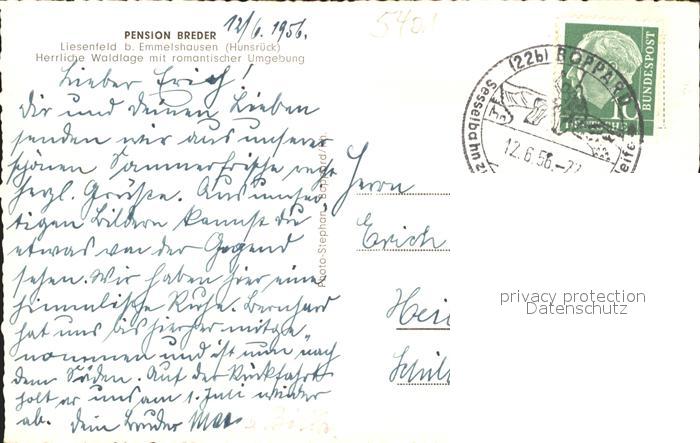 12/6. 1956.
5401
PENSION BREDER
Liesenfeld b. Emmelshausen (Hunsrück)
Herrliche Waldlage mit romantischer Umgebung
Lieber Erich!
Dir und deinen Lieben
senden wir aus unserer
schönen Sommerfrische recht
herzl. Grüße. Aus umsei-
tigen Bildern kannst du
etwas von der Gegend
sehen. Wir haben hier eine
himmlische Ruhe. Bernhard
hat uns bis hierher mitge-
nommen und ist nun nach
dem Süden. Auf der Rückfahrt
holt er uns am 1. Juli wieder
ab. Dein Bruder Max
Photo-Stephan, Boppard/Rh.
Herrn
Erich
(22b) BOPPARD
Sesselbahn
12.6.56.
10
BUNDESPOST
privacy protection
Datenschutz